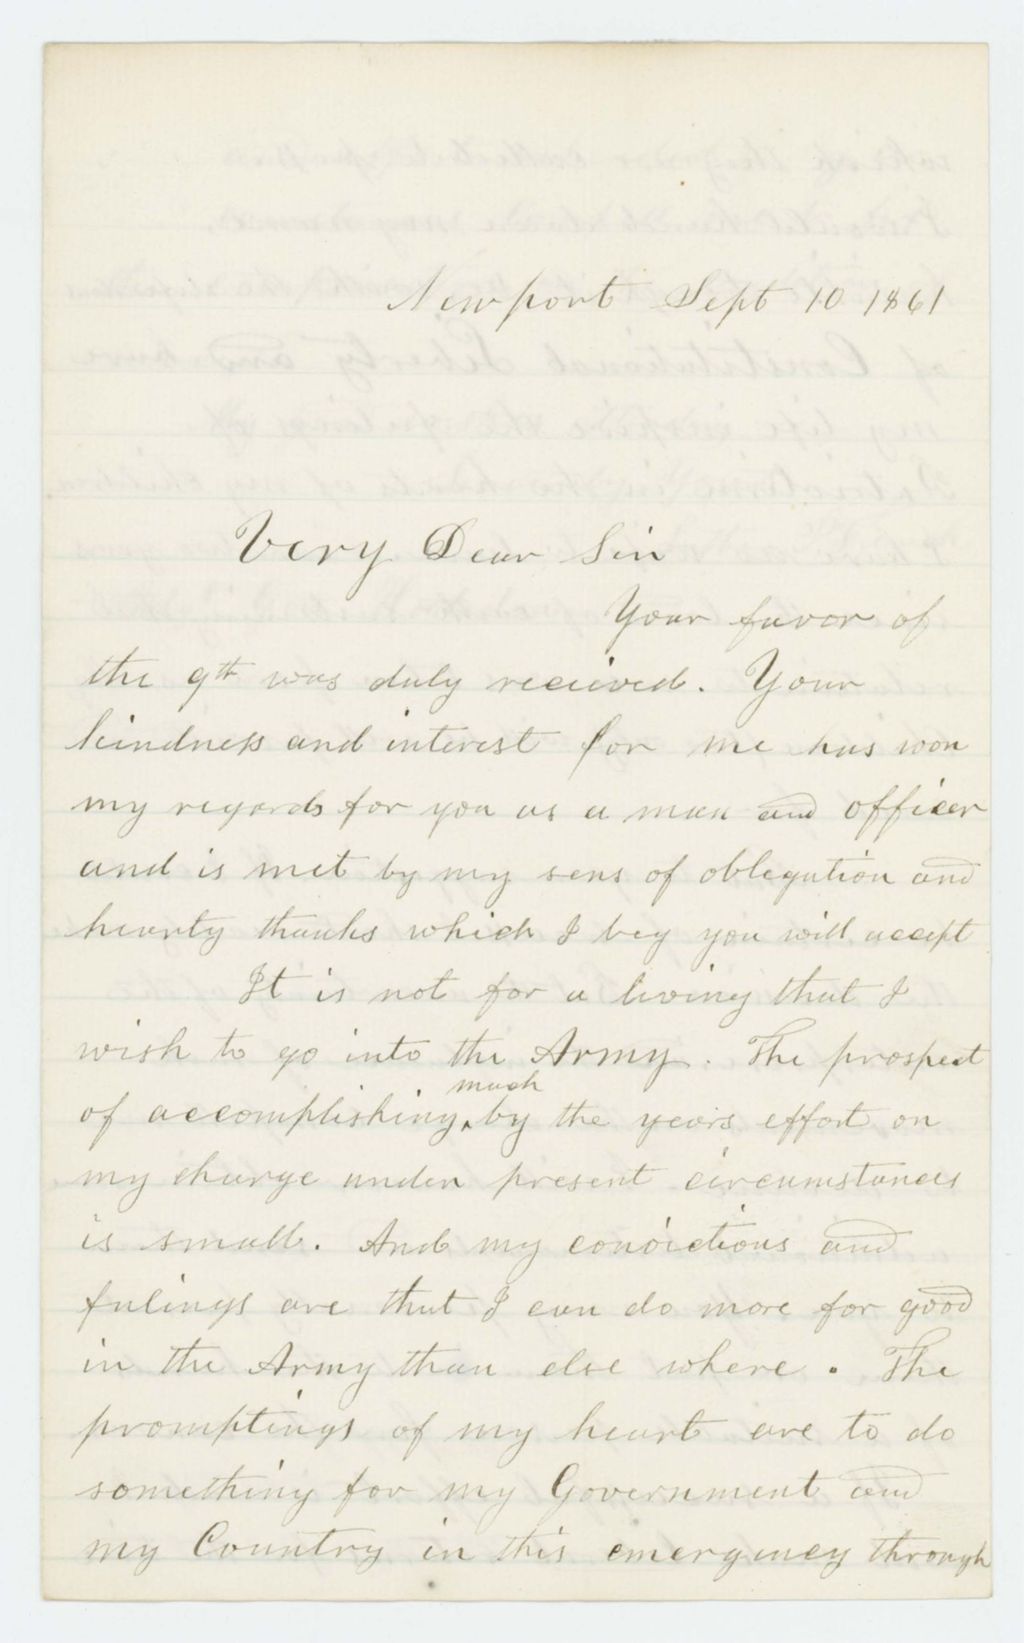 Newport Sept 10 1861
Very Dear Sir
Your favor of
the 9th was duly recieved. Your
kindness and interest for me has won
my regards for you as a man and officer
and is met by my sens of oblegation and
hearty thanks which I beg you will accept
It is not for a living that I
wish to go into the Army. The prospect
of accomplishing much by the years effort on
my charge under present circumstances
is small. And my convictions and
fulings are that I can do more for good
in the Army than else where. The
promptings of my heart are to do
something for my Government and
my Country in this emergency through